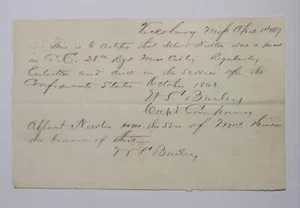 Vicksburg Miss April 1st 1867
This is to certify that Albert Newton was a
in Co. C. 28th Regt Miss Cavly Regularly
Enlisted and died in the service of the
Confederate States October 1863
W. S. Bailey
Capt Company
Albert Newton was the son of Mrs
W. S. Bailey